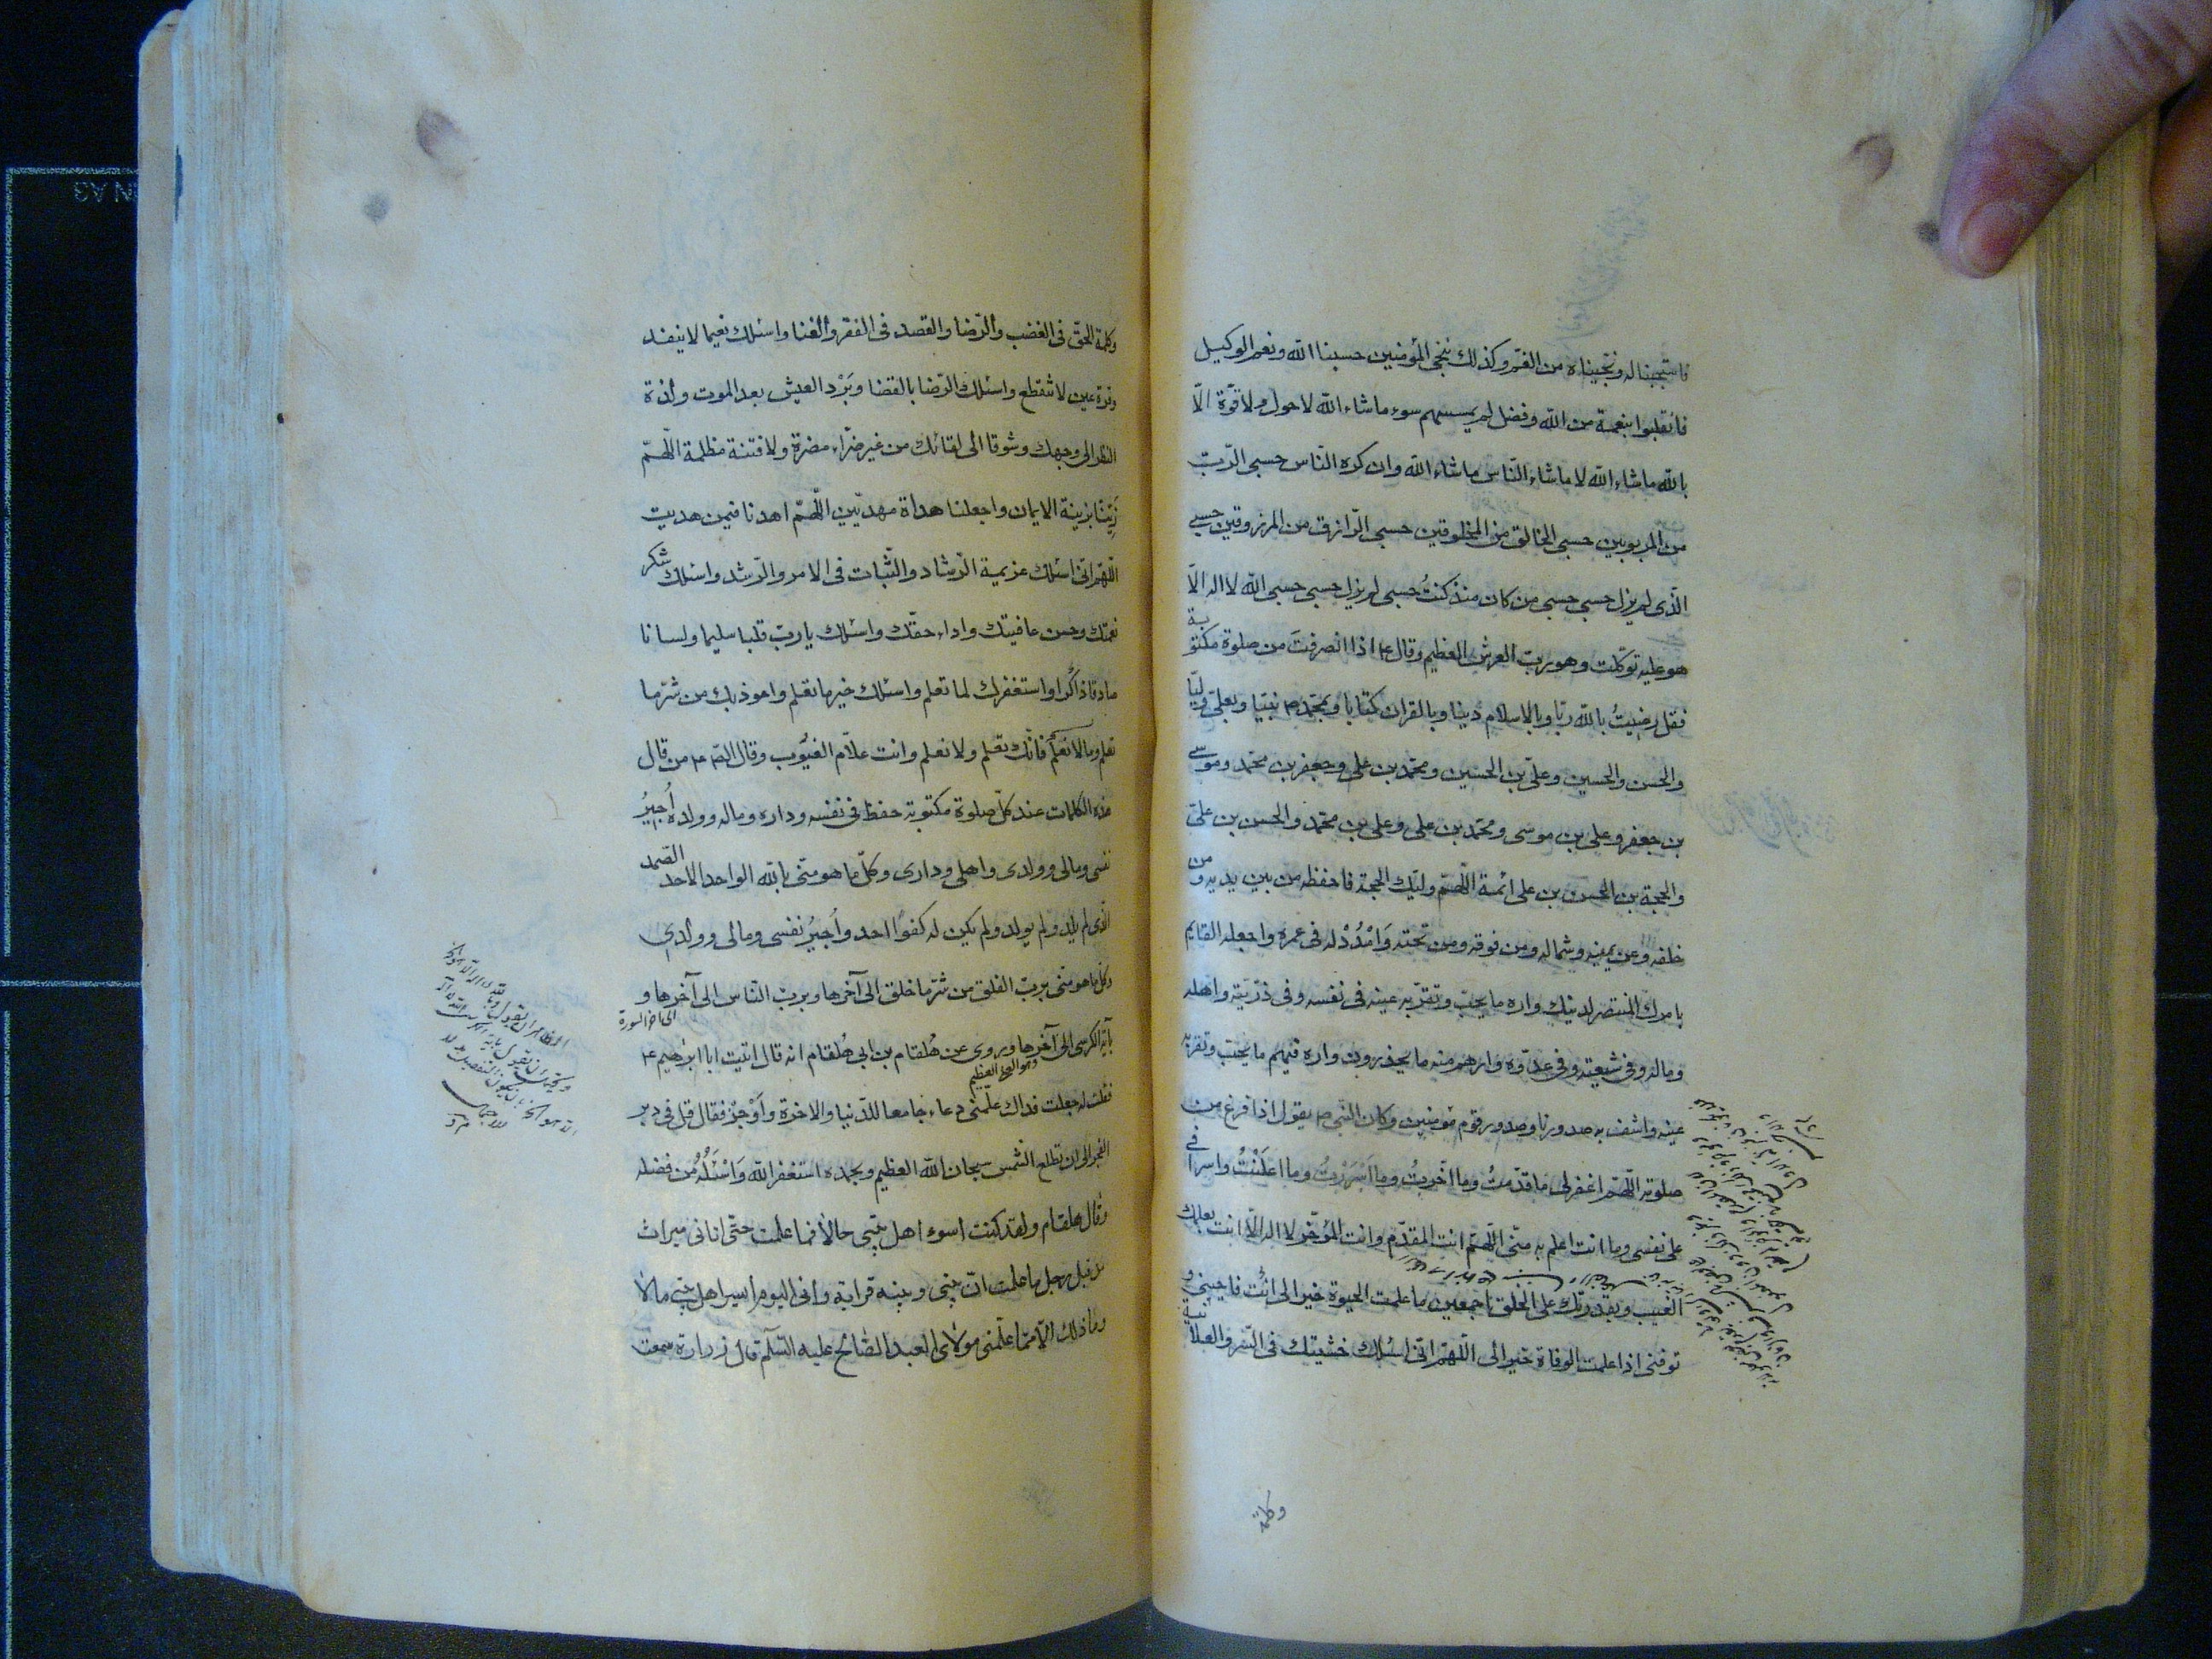 فاستجبنا له ونجيناه من الغم وكذلك ننجى المؤمنين حسبنا الله ونعم الوكيل
فانقلبوا بنعمة من الله وفضل لم يمسسهم سوء ما شاء الله لا حول ولا قوّة الّا
بالله ما شاء الله لا ما شاء النّاس ما شاء الله وان كره النّاس حسبى الرّبّ
من المربوبين حسبى الخالق من المخلوقين حسبى الرّازق من المرزوقين حسبى
الّذى لم يزل حسبى حسبى من كان منذ كنتُ حسبى لم يزل حسبى حسبى الله لا اله الّا
هو عليه توكّلت وهو ربّ العرش العظيم وقال ع اذا انصرفتَ من صلوة مكتوبة
فقل رضيتُ بالله ربّا وبالاسلام دينا وبالقران كتابا وبمحمّد ص نبيّا وبعلىّ وليّا
والحسن والحسين وعلىّ بن الحسين ومحمّد بن على وجعفر بن محمّد وموسى
بن جعفر وعلى بن موسى ومحمّد بن على وعلى بن محمّد والحسن بن علىّ
والحجة بن الحسن بن على ائمة اللّهمّ وليّك الحجة فاحفظه من بين يديه ومن
خلفه وعن يمينه وشماله ومن فوقه ومن تحته وَامْدُدْ له فى عمره واجعله القايم
بامرك المنتصر لدينك واره ما يحبّ وتقرّ به عينه فى نفسه وفى ذرّيّته واهله
وماله وفى شيعته وفى عدّوه وارهم منه ما يحذرون واره فيهم ما يحبّ وتقرّ به
عينه واشف به صدورنا وصدور قوم مؤمنين وكان النّبى ص يقول اذا فرغ من
صلوته اللّهمّ اغفر لى ما قدّمتُ وما اخّرتُ وما اَسْرَرْتُ وما اعلَنْتُ واسرافى
على نفسى وما انت اعلم به منّى اللّهمّ انت المقدّم وانت المؤخّر لا اله الّا انت بعلمك
الغيب وبقدرتك على الخلق اجمعين ما علمت الحيوة خيرا لى فاحينى و
توفنى اذا علمت الوفاة خيرا لى اللّهمّ انّى اسئلك خشيتك فى السّر والعلانية
وكلمة
وكلمة الحقّ فى الغضب والرّضا والقصد فى الفقر والغنا واسئلك نعيما لا ينفد
وقرة عين لا تنقطع واسئلك الرّضا بالقضا وبَرْد العيش بعد الموت ولذة
النظر الى وجهك وشوقا الى لقائك من غير ضرّاء مضرة ولا فتنة مظلمة اللّهمّ
زَيِّنّا بزينة الايمان واجعلنا هداة مهديّين اللّهمّ اهدنا فيمن هديت
اللّهمّ انى اسئلك عزيمة الرّشاد والثّبات فى الامر والرّشد واسئلك شكر
نعمتك وحسن عافيتك واداء حقّك واسئلك يا ربّ قلبا سليما ولسانا
صادقا ذاكرا واستغفرك لما تعلم واسئلك خير ما تعلم واعوذ بك من شرّ ما
تعلم وما لا نعلم فانّك تعلم ولا نعلم وانت علّام الغيوب وقال الصّ ع من قال
هذه الكلمات عند كلّ صلوة مكتوبة حفظ فى نفسه وداره وماله وولده اُجيرُ
نفسى ومالى وولدى واهلى ودارى وكلّ ما هو منّى بالله الواحد الاحد الصّمد
الّذى لم يلد ولم يولد ولم يكن له كفوًا احد واُجيرُ نفسى ومالى وولدى
وكلّ ما هو منّى بربّ الفلق من شرّ ما خلق الى آخرها وبربّ النّاس الى آخرها و
الى اخر السورة
بآية الكرسى الى آخرها وروى عن هُلقام بن ابى هُلقام انه قال اتيت ابا ابراهيم ع
وهو العلى العظيم
فقلت له جعلت فداك علّمنى دعاء جامعا للدّنيا والاخرة وأَوْجِزْ فقال قل فى دبر
الفجر الى ان تطلع الشّمس سبحان الله العظيم وبحمده استغفر الله وَاَسْئَلُهُ من فضله
وقال هلقام ولقد كنت اسوء اهل بيتى حالا فما علمت حتّى اتانى ميراث
من قبل رجل ما علمت انّ بينى وبينه قرابة وانى اليوم أيسر اهل بيتى مالا
وما ذلك الّا ممّا علّمنى مولاى العبد الصّالح عليه السّلم قال زرارة سمعت